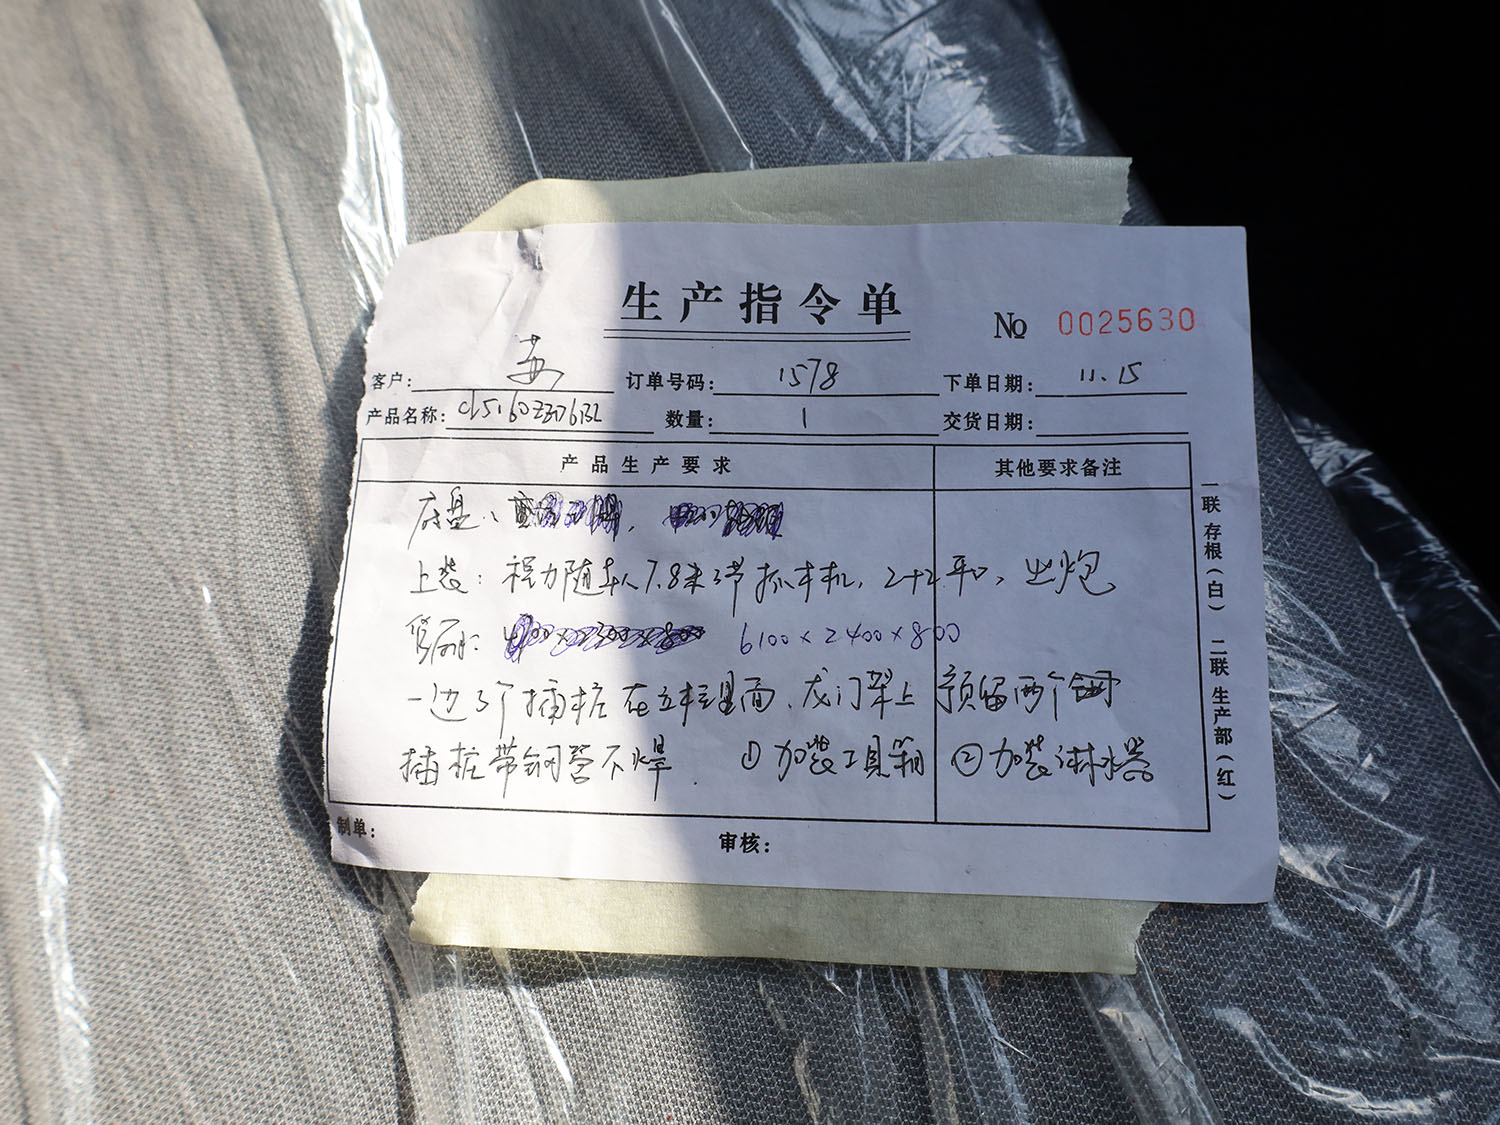 生产指令单
No 0025630
客户： 苏 订单号码： 1578 下单日期： 11.15
产品名称： 数量： 1 交货日期：
产品生产要求 其他要求备注
底盘：
上装：程力随车 7.8米3节抓木机，2+2平口，出炮
货厢： 6100×2400×800
一边3个插桩在立柱里面、龙门架上预留两个
插桩带钢管不焊. ①加装工具箱 ②加装淋水器
制单： 审核：
一联存根（白） 二联生产部（红）